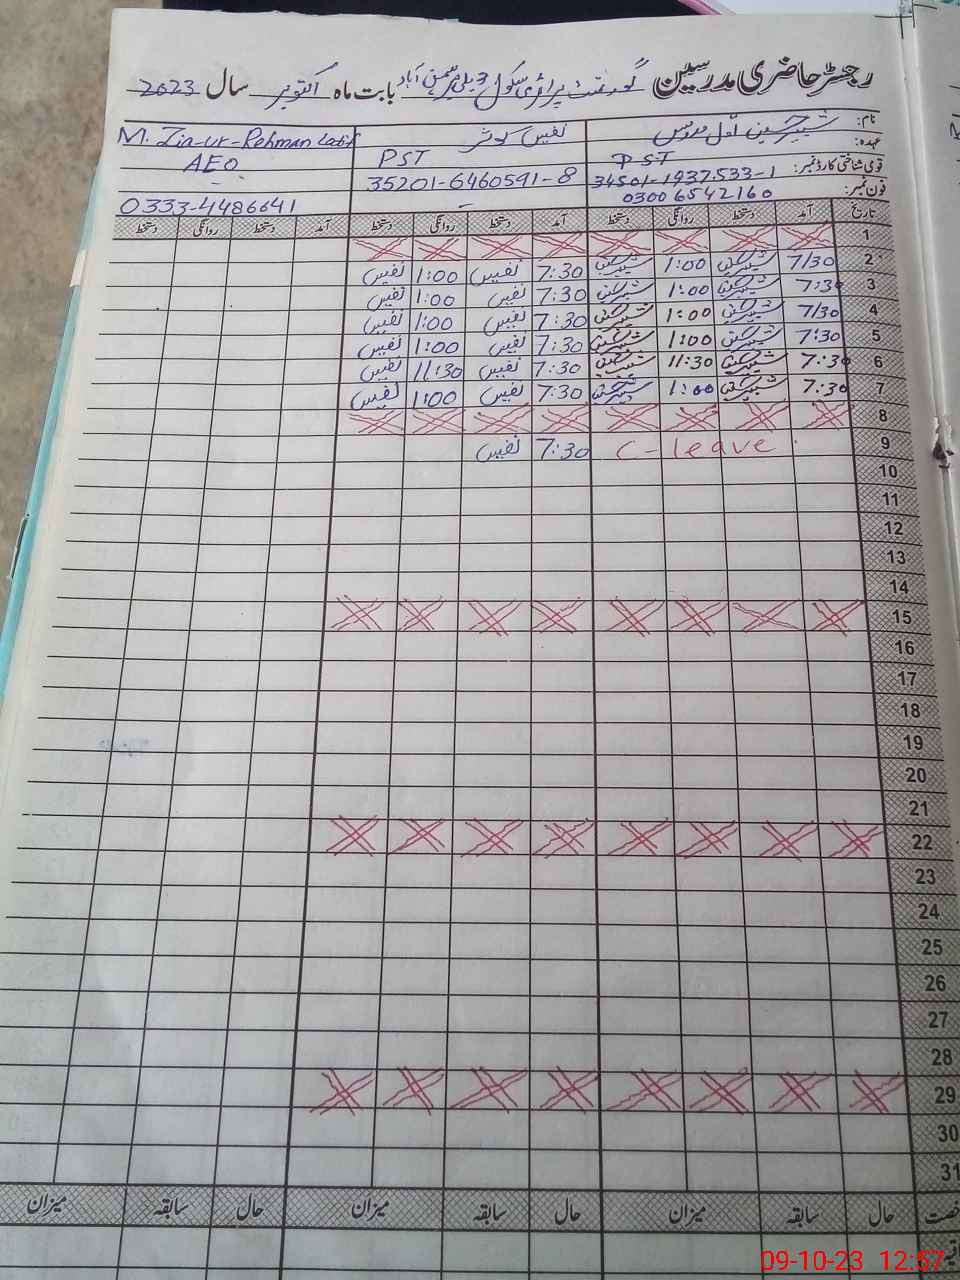 رجسٹر حاضری مدرسین گورنمنٹ پرائمری سکول بابت ماہ اکتوبر سال 2023
نام: شبیر حسین اول مدرس نفیس کوثر M. Zia-ur-Rehman Latif
عہدہ: PST PST AEO
قومی شناختی کارڈ نمبر: 34501-1937533-1 35201-6460591-8
فون نمبر: 0300 6542160 - 0333-4486641
تاریخ آمد دستخط روانگی دستخط آمد دستخط روانگی دستخط آمد دستخط روانگی دستخط
1
2 7/30 شبیر حسین 1:00 شبیر حسین 7:30 نفیس 1:00 نفیس
3 7:30 شبیر حسین 1:00 شبیر حسین 7:30 نفیس 1:00 نفیس
4 7/30 شبیر حسین 1:00 شبیر حسین 7:30 نفیس 1:00 نفیس
5 7:30 شبیر حسین 1:00 شبیر حسین 7:30 نفیس 1:00 نفیس
6 7:30 شبیر حسین 11:30 شبیر حسین 7:30 نفیس 11:30 نفیس
7 7:30 شبیر حسین 1:00 شبیر حسین 7:30 نفیس 1:00 نفیس
8
9 C-leave 7:30 نفیس
10
11
12
13
14
15
16
17
18
19
20
21
22
23
24
25
26
27
28
29
30
31
حال سابقہ میزان حال سابقہ میزان حال سابقہ میزان
09-10-23 12:57